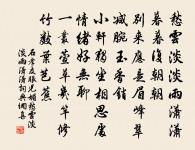 愁雲淡淡雨瀟瀟
暮暮復朝朝
別來應是眉峰翠
減腕玉香銷
小軒獨坐相思處
情緒好無聊
一叢萱草幾竿修
竹數葉芭蕉
石孝友眼兒媚愁雲淡
淡雨瀟瀟詞典網書